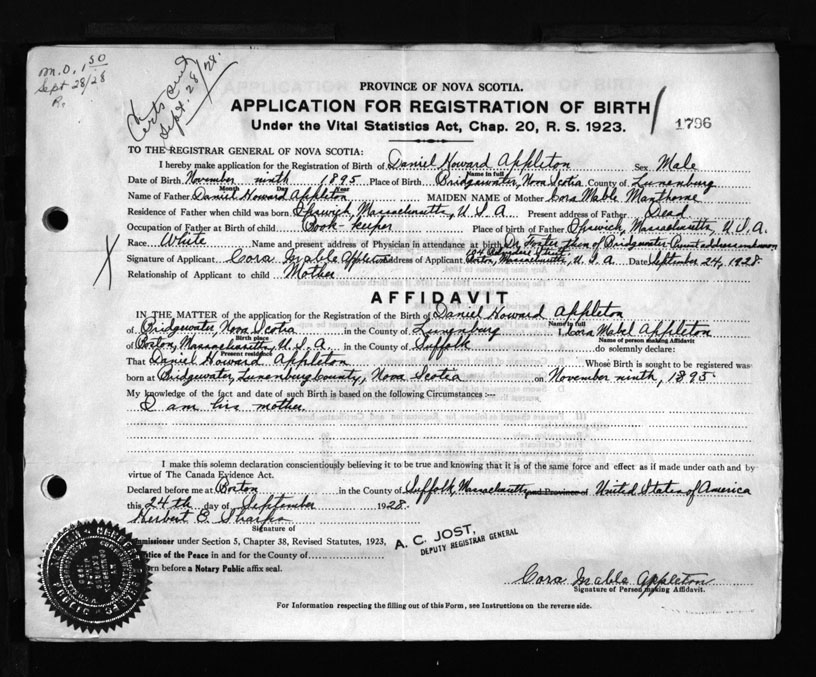 M.O. 1.50
Sept 28/28
Certs and
Sept. 28/28.
PROVINCE OF NOVA SCOTIA.
APPLICATION FOR REGISTRATION OF BIRTH
1796
Under the Vital Statistics Act, Chap. 20, R. S. 1923.
TO THE REGISTRAR GENERAL OF NOVA SCOTIA:
I hereby make application for the Registration of Birth of Daniel Howard Appleton Sex Male
Name in full
Date of Birth November ninth 1895 Place of Birth Bridgewater, Nova Scotia County of Lunenburg
Month Day Year
Name of Father Daniel Howard Appleton MAIDEN NAME of Mother Cora Mable Manthorne
Residence of Father when child was born Ipswich, Massachusetts, U.S.A Present address of Father Dead
Occupation of Father at Birth of child Book-keeper Place of birth of Father Ipswich, Massachusetts, U.S.A.
Race White Name and present address of Physician in attendance at birth Dr. Foster, then of Bridgewater. Present address unknown
Signature of Applicant Cora Mable Appleton Address of Applicant Boston, Massachusetts, U.S.A Date September 24, 1928.
Relationship of Applicant to child Mother
AFFIDAVIT
IN THE MATTER of the application for the Registration of the Birth of Daniel Howard Appleton
Name in full
of Bridgewater, Nova Scotia in the County of Lunenburg I, Cora Mabel Appleton
Birth place Name of person making Affidavit
of Boston, Massachusetts, U.S.A. in the County of Suffolk do solemnly declare:
Present residence
That Daniel Howard Appleton Whose Birth is sought to be registered was
born at Bridgewater, Lunenburg County, Nova Scotia on November ninth, 1895.
My knowledge of the fact and date of such Birth is based on the following Circumstances :—
I am his mother.
I make this solemn declaration conscientiously believing it to be true and knowing that it is of the same force and effect as if made under oath and by
virtue of The Canada Evidence Act.
Declared before me at Boston in the County of Suffolk, Massachusetts and Province of United States of America
this 24th day of September 1928.
Herbert E. Sharpe
Signature of
mmissioner under Section 5, Chapter 38, Revised Statutes, 1923,
stice of the Peace in and for the County of
rn before a Notary Public affix seal.
A. C. JOST,
DEPUTY REGISTRAR GENERAL
Cora Mable Appleton
Signature of Person making Affidavit.
For Information respecting the filling out of this Form, see Instructions on the reverse side.